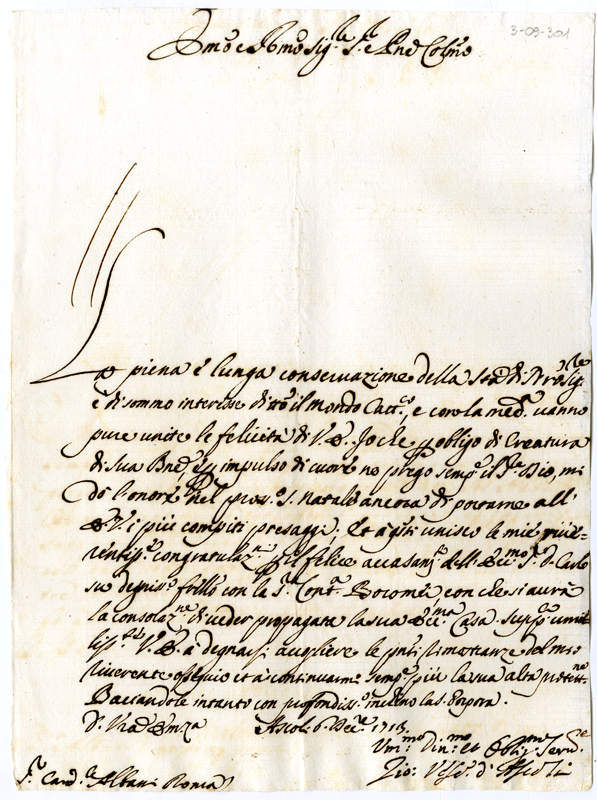 3-09-301
Em̃o e Rm̃o Sig.re S.r e Pñe Col̃mo
La piena e lunga conservazione della S.tà di Nr̃o Sig.re
è di sommo interesse di tt̃o il mondo Catt.co, e con la med.a vanno
pure unite le felicità di V. E. Io che p obligo di Creatura
di Sua Bñe e p impulso di cuore ne prego semp.e il S.r Dio, mi
dò l'onore nel pross.o S. Natale ancora di portarne all'
E. V. i più compiti presaggi, et a q̃sti unisco le mie rive-
rentiss.e congratulaz.ni p il felice accasam.to dell' Ecc.mo S.r D. Carlo
suo degniss.o fr̃llo con la S.ra Cont.a Boromei con che si avrà
la consolaz.ne di veder propagata la sua Ecc.ma Casa. Supp.co umil
liss.te V. E. a degnarsi accogliere le pñti stimonianze del mio
riverente ossequio et à continuarmi semp.e più la sua alta protett.ne
Baciandole intanto con profondiss.o inchino la S. Porpora.
D. Vr̃a Em̃za Ascoli 6 Dec.re 1715
Um.mo Div.mo et Obblig.mo Serv.e
Gio: Vesc.o d' Ascoli
S.r Card.le Albani Roma